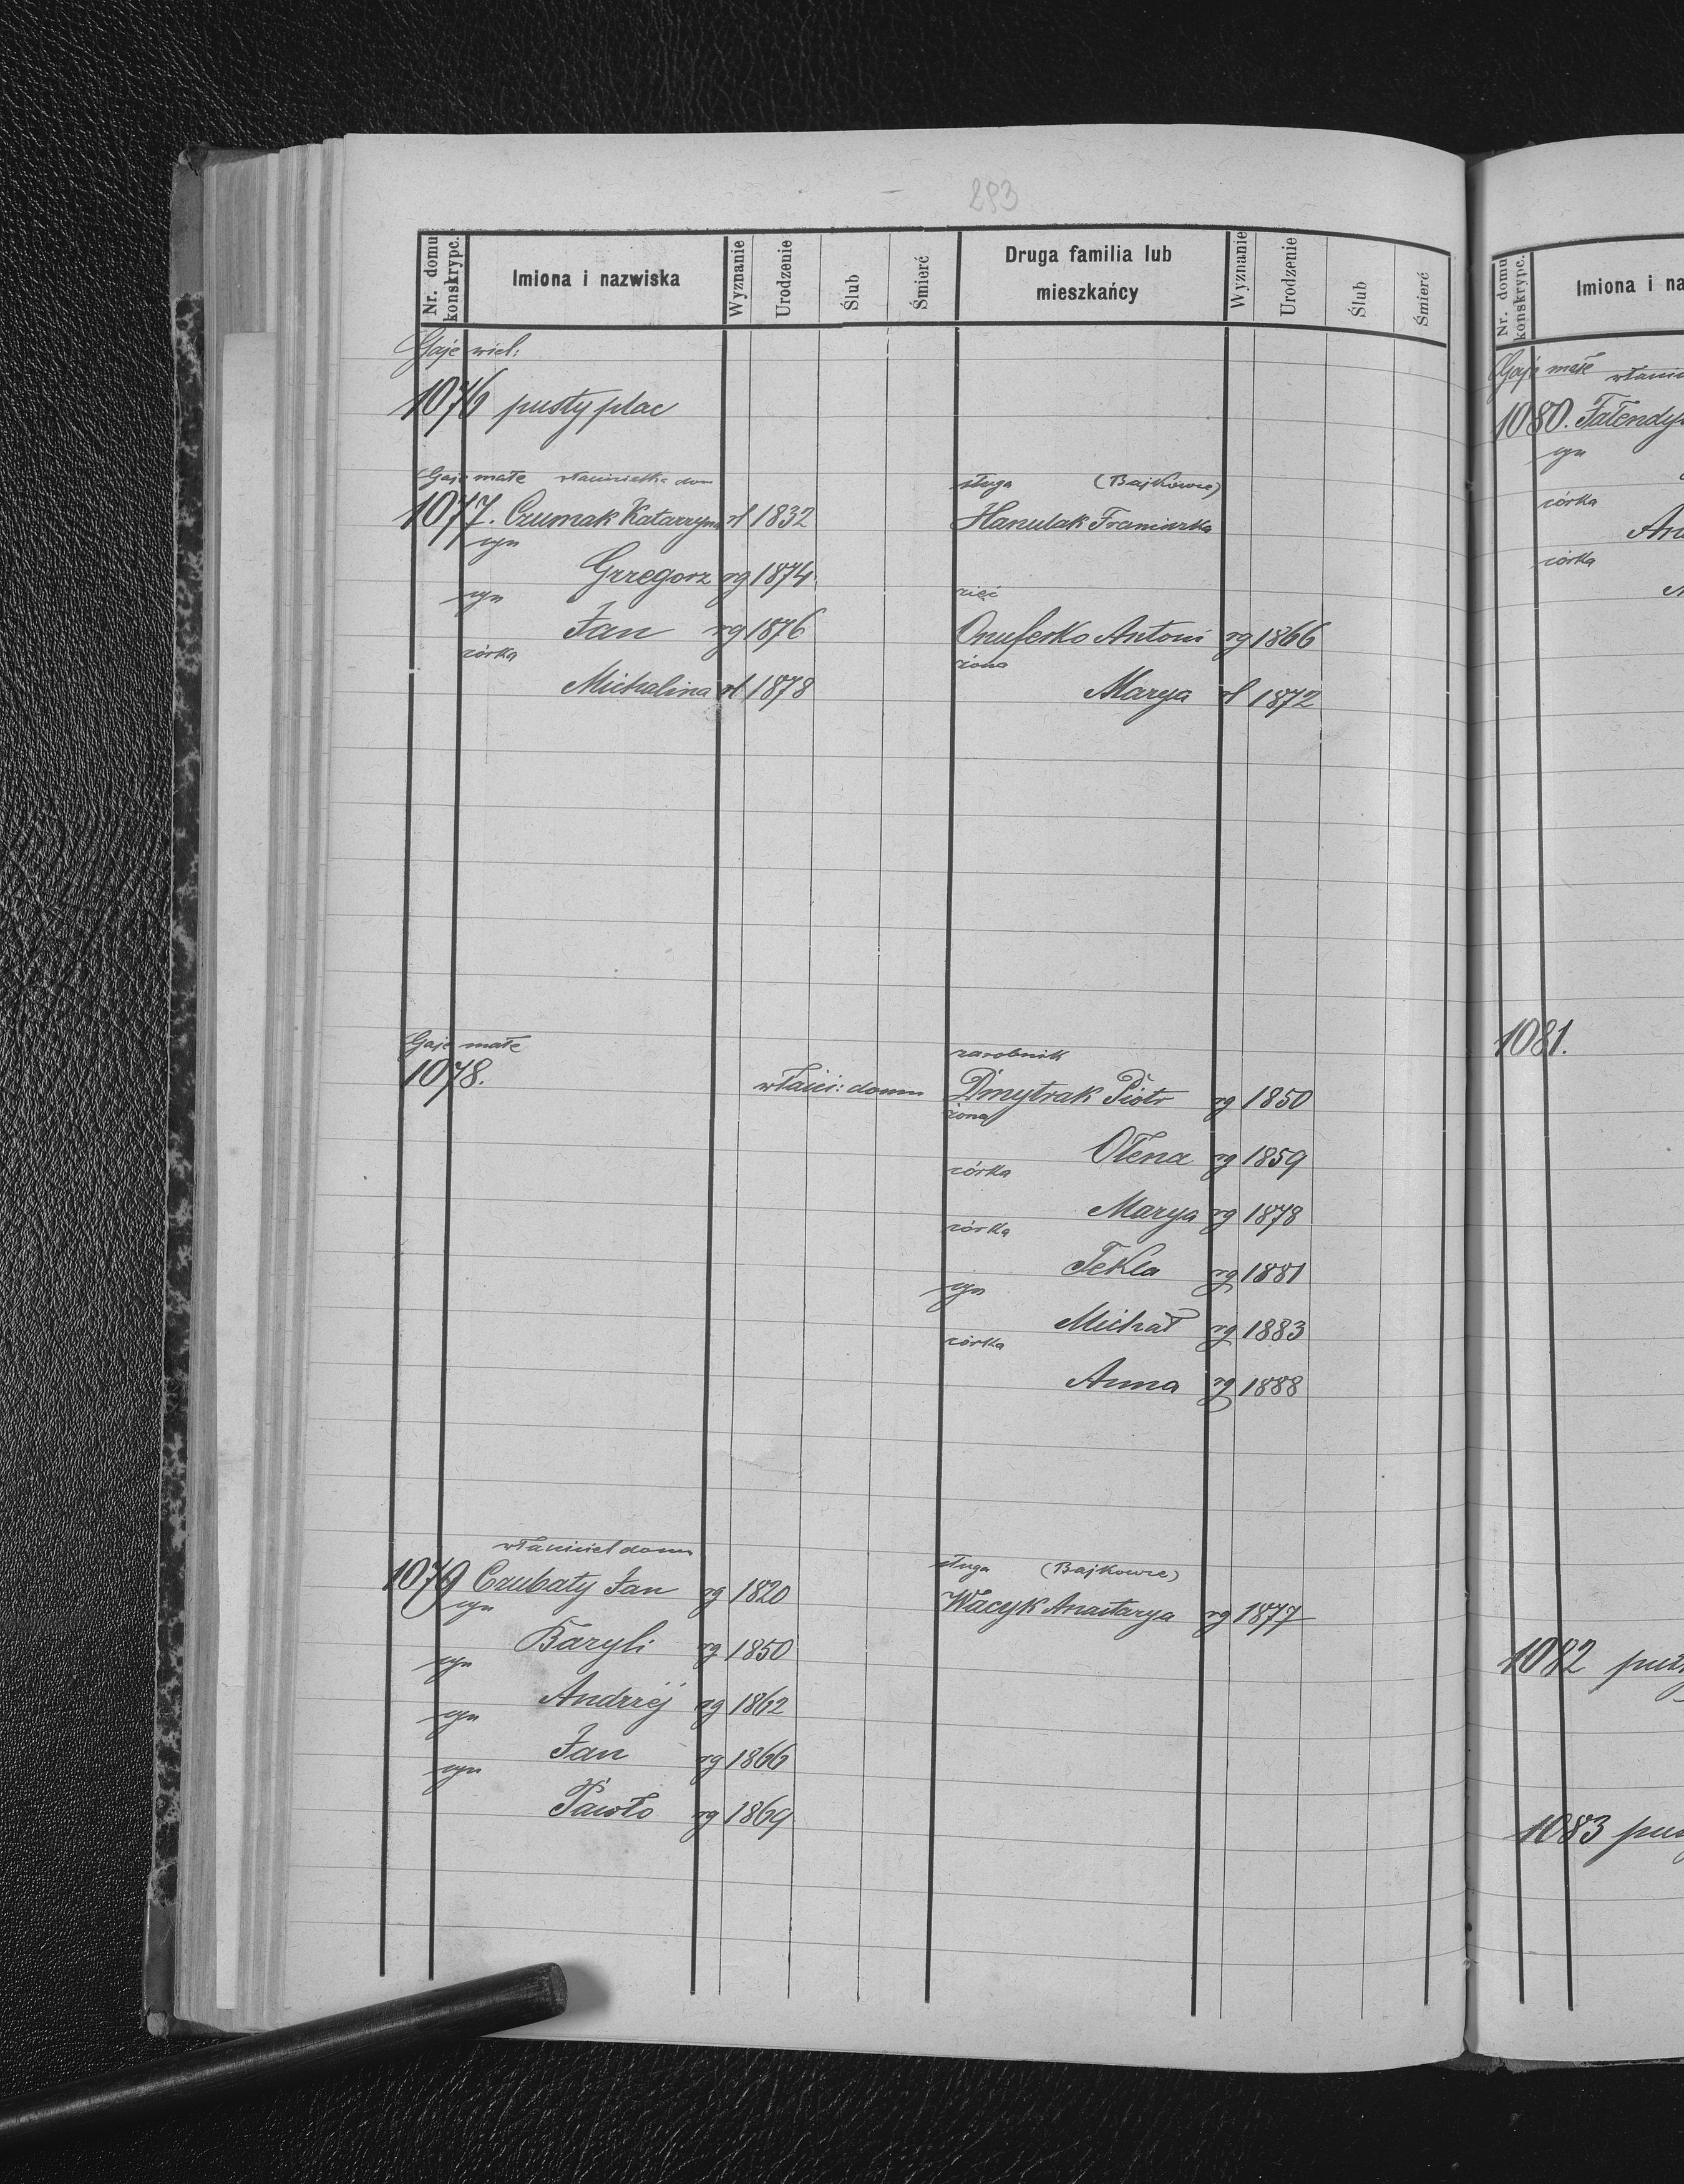 293
Nr. domu konskrypc. Imiona i nazwiska Wyznanie Urodzenie Ślub Śmierć Druga familia lub mieszkańcy Wyznanie Urodzenie Ślub Śmierć
Gaje wiel:
1076 pusty plac
Gaje małe właścicielka dom
1077. Czumak Katarzyna rł 1832
syn
Grzegorz rg 1874
syn
Jan rg 1876
córka
Michalina rł 1878
sługa (Bajkowce)
Hanulak Franciszka
zięć
Onuferko Antoni rg 1866
żona
Marya rł 1872
Gaje małe
1078. właści: domu
zarobnik
Dmytrak Piotr rg 1850
żona
Ołena rg 1859
córka
Marya rg 1878
córka
Tekla rg 1881
syn
Michał rg 1883
córka
Anna rg 1888
właściciel domu
1079 Czubaty Jan rg 1820
syn
Bazyli rg 1850
syn
Andrzéj rg 1862
syn
Jan rg 1866
syn
Pawło rg 1869
sługa (Bajkowce)
Wacyk Anastazya rg 1877
Nr. domu konskrypc. Imiona i na
Gaje małe
1080.
syn
córka
córka
1081.
1082
1083